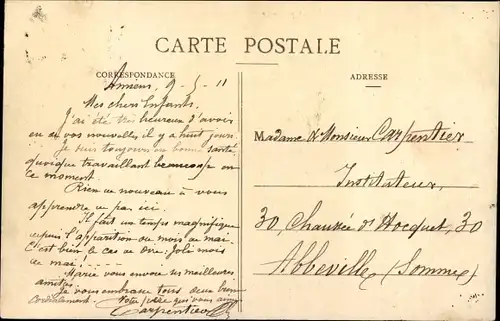 CARTE POSTALE
CORRESPONDANCE
ADRESSE
Amiens 9-5-11
Mes chers Enfants.
J'ai été très heureux d'avoir
eu de vos nouvelles il y a huit jours.
Je suis toujours en bonne santé
quoique travaillant beaucoup en
ce moment.
Rien de nouveau à vous
apprendre un peu ici.
Il fait un temps magnifique
depuis l'apparition du mois de mai.
C'est bien le cas de dire: Joli mois
de mai,
Marie vous envoie ses meilleures
amitiés.
Je vous embrasse tous deux bien
Cordialement. Votre père qui vous aime
Carpentier
Madame & Monsieur Carpentier
Instituteur
30 Chaussée d'Hocquet, 30
Abbeville (Somme)